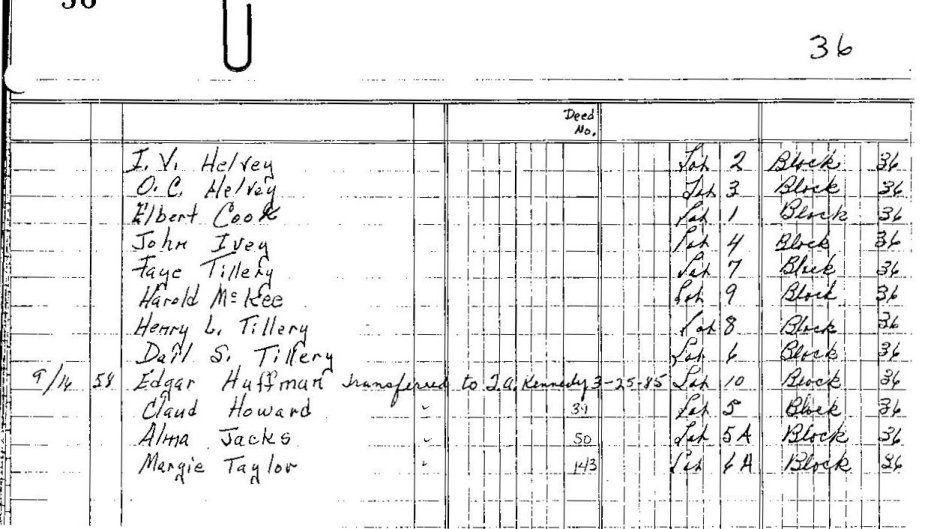 36
36
Deed No.
I. V. Helvey Lot 2 Block 36
O. C. Helvey Lot 3 Block 36
Elbert Cook Lot 1 Block 36
John Ivey Lot 4 Block 36
Faye Tillery Lot 7 Block 36
Harold McKee Lot 9 Block 36
Henry L. Tillery Lot 8 Block 36
S. Tillery Lot 6 Block 36
9/16 58 Edgar Huffman transferred to Kennedy 3-25-85 Lot 10 Block 36
Claud Howard 39 Lot 5 Block 36
Alma Jacks 50 Lot 5A Block 36
Margie Taylor 143 Lot 6A Block 36